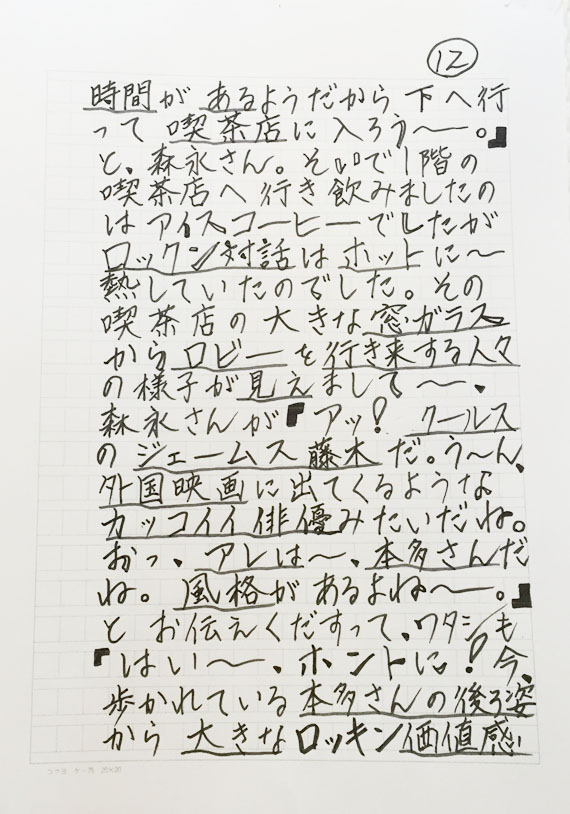 12
時間が あるようだから 下へ行
って 喫茶店に 入ろう〜。』
と、森永さん。そいで1階の
喫茶店へ 行き 飲みましたの
は アイスコーヒーでしたが
ロックン対話は ホットに〜
熱していたのでした。その
喫茶店の 大きな窓ガラス
から ロビーを行き来する人々
の様子が見えまして〜、
森永さんが『アッ! クールス
の ジェームス 藤木 だ。う〜ん、
外国映画に出てくるような
カッコイイ 俳優みたいだね。
おっ、アレは〜、本多さんだ
ね。風格が あるよね〜。』
と お伝えくだすって、ワタシも
『はい〜、ホントに! 今、
歩かれている 本多さんの後ろ姿
から 大きな ロッキン価値感
コクヨ ケー75 20×20